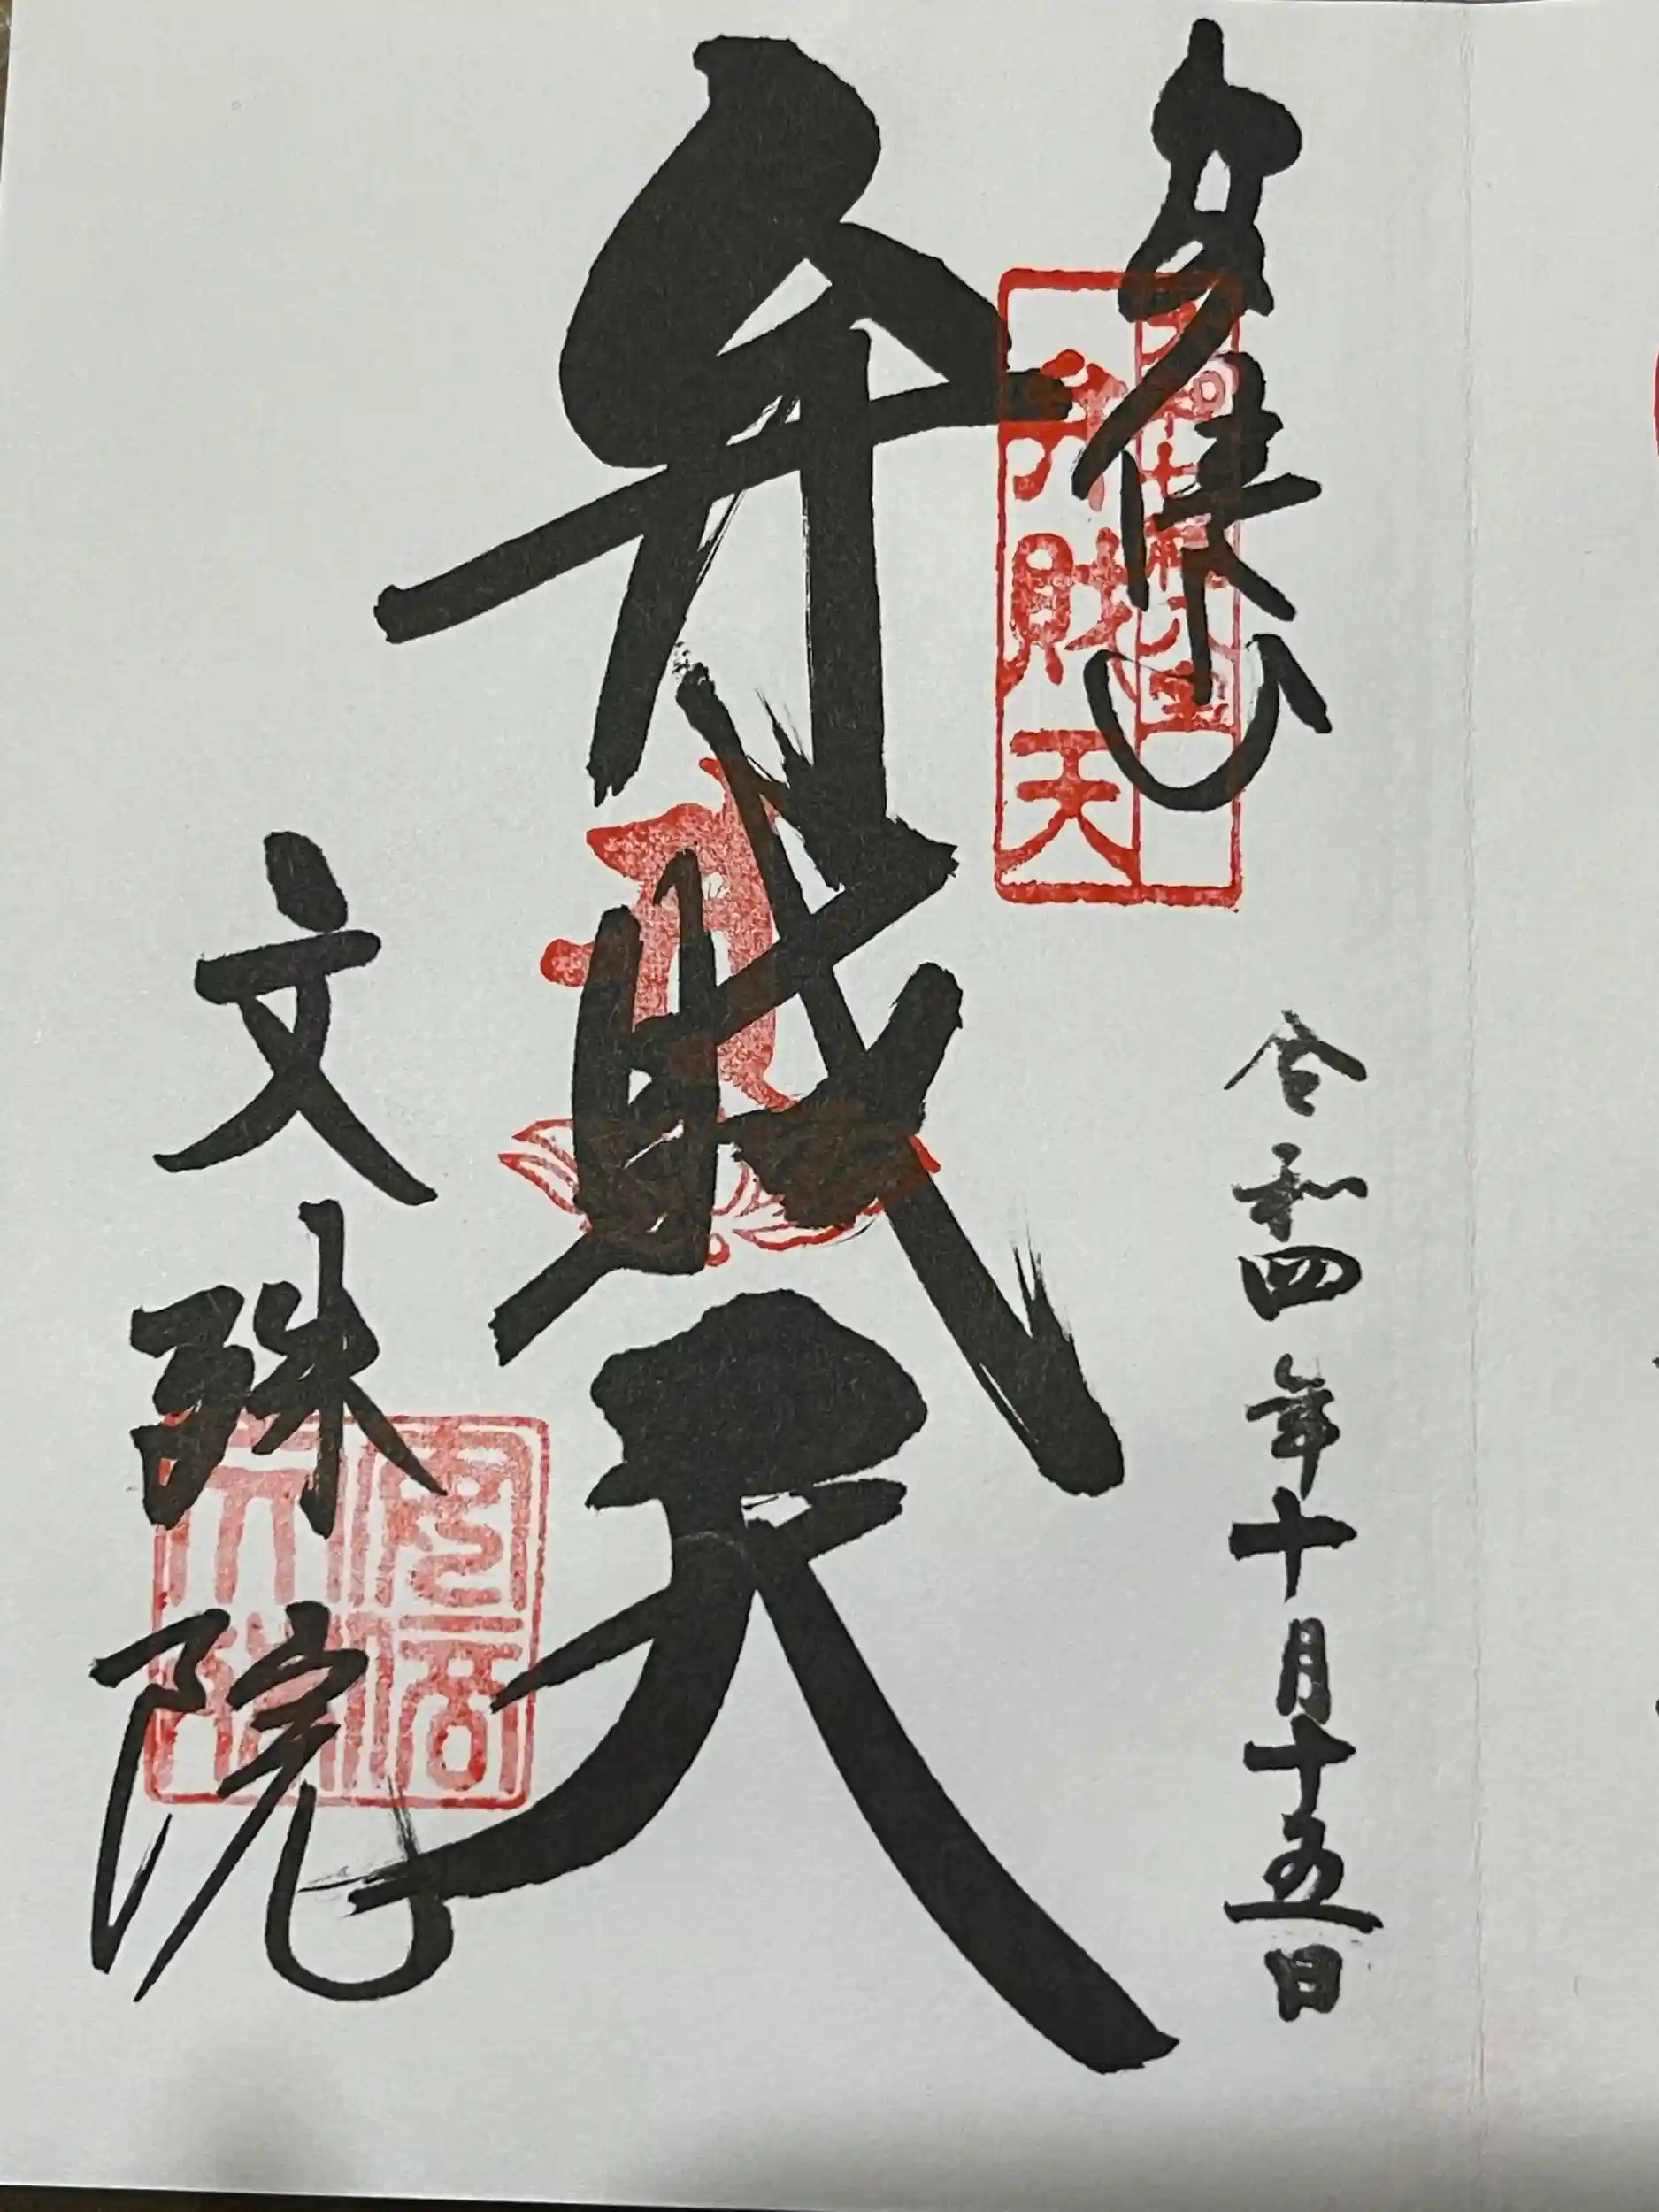 奉拝
令和四年十月十五日
弁財天
弁財天
文殊院